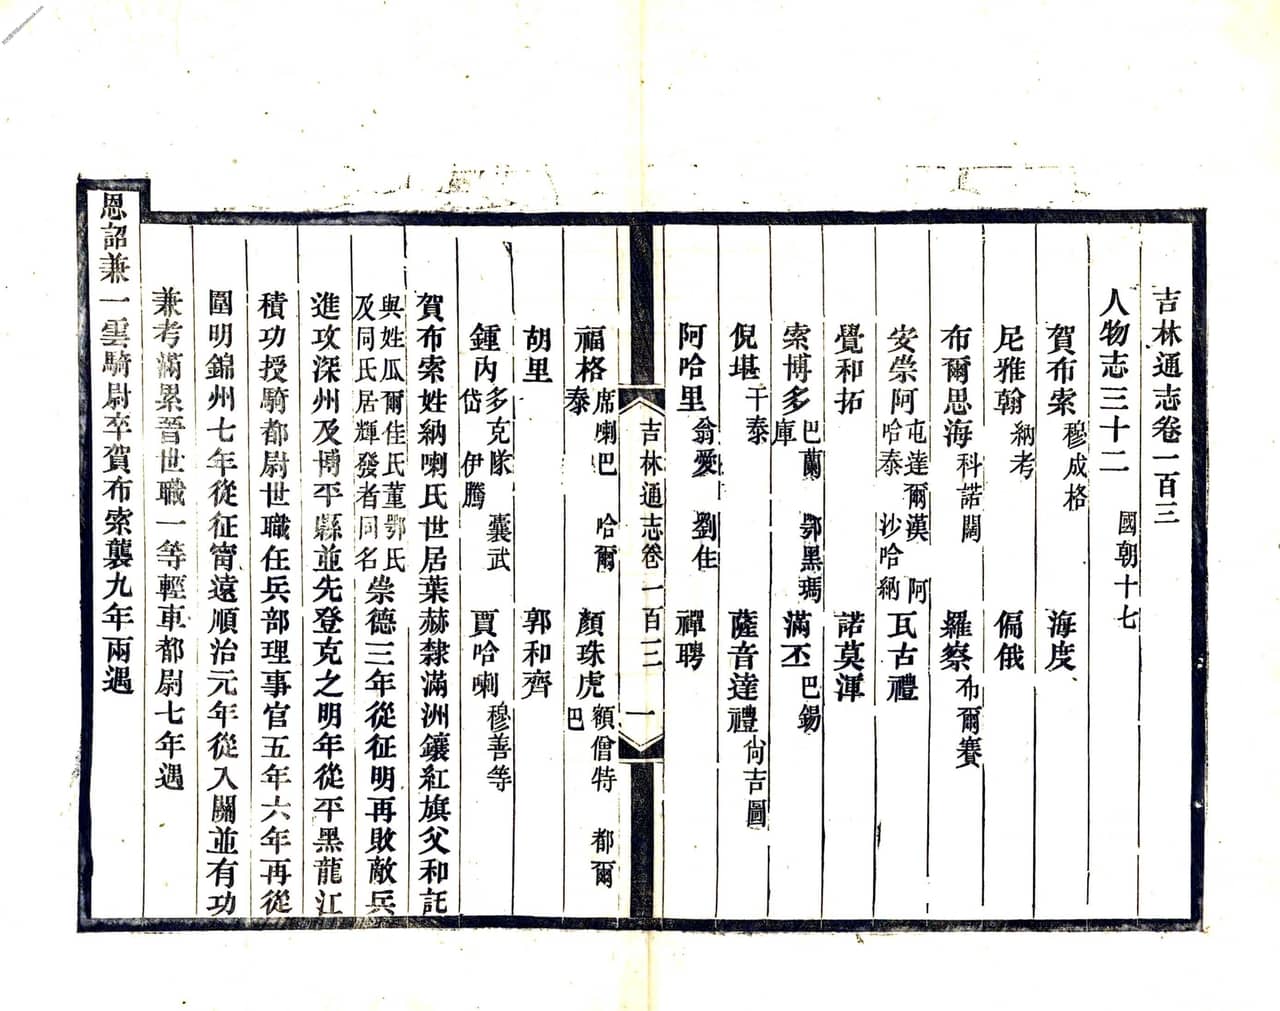 吉林通志卷一百三
人物志三十二 國朝十七
賀布索 穆成格 海度
尼雅翰 納考 偏俄
布爾思海 科諾闊 羅察 布爾賽
安崇阿 屯達爾漢 阿哈泰 沙哈納 瓦古禮
覺和拓 諾莫渾
索博多 巴蘭 鄂黑瑪庫 滿丕 巴錫
倪堪 干泰 薩音達禮 尙吉圖
阿哈里 翁愛 劉住 禪聘
吉林通志卷一百三 一
福格 席喇巴 哈爾泰 顏珠虎 額僧特 都爾巴
胡里 郭和齊
鍾內 多克隊 囊武岱 伊騰 賈哈喇 穆善等
賀布索姓納喇氏世居葉赫隸滿洲鑲紅旗父和託
與姓瓜爾佳氏董鄂氏及同氏居輝發者同名崇德三年從征明再敗敵兵
進攻深州及博平縣並先登克之明年從平黑龍江
積功授騎都尉世職任兵部理事官五年六年再從
圍明錦州七年從征甯遠順治元年從入關並有功
兼考滿累晉世職一等輕車都尉七年遇
恩詔兼一雲騎尉卒賀布索襲九年兩遇